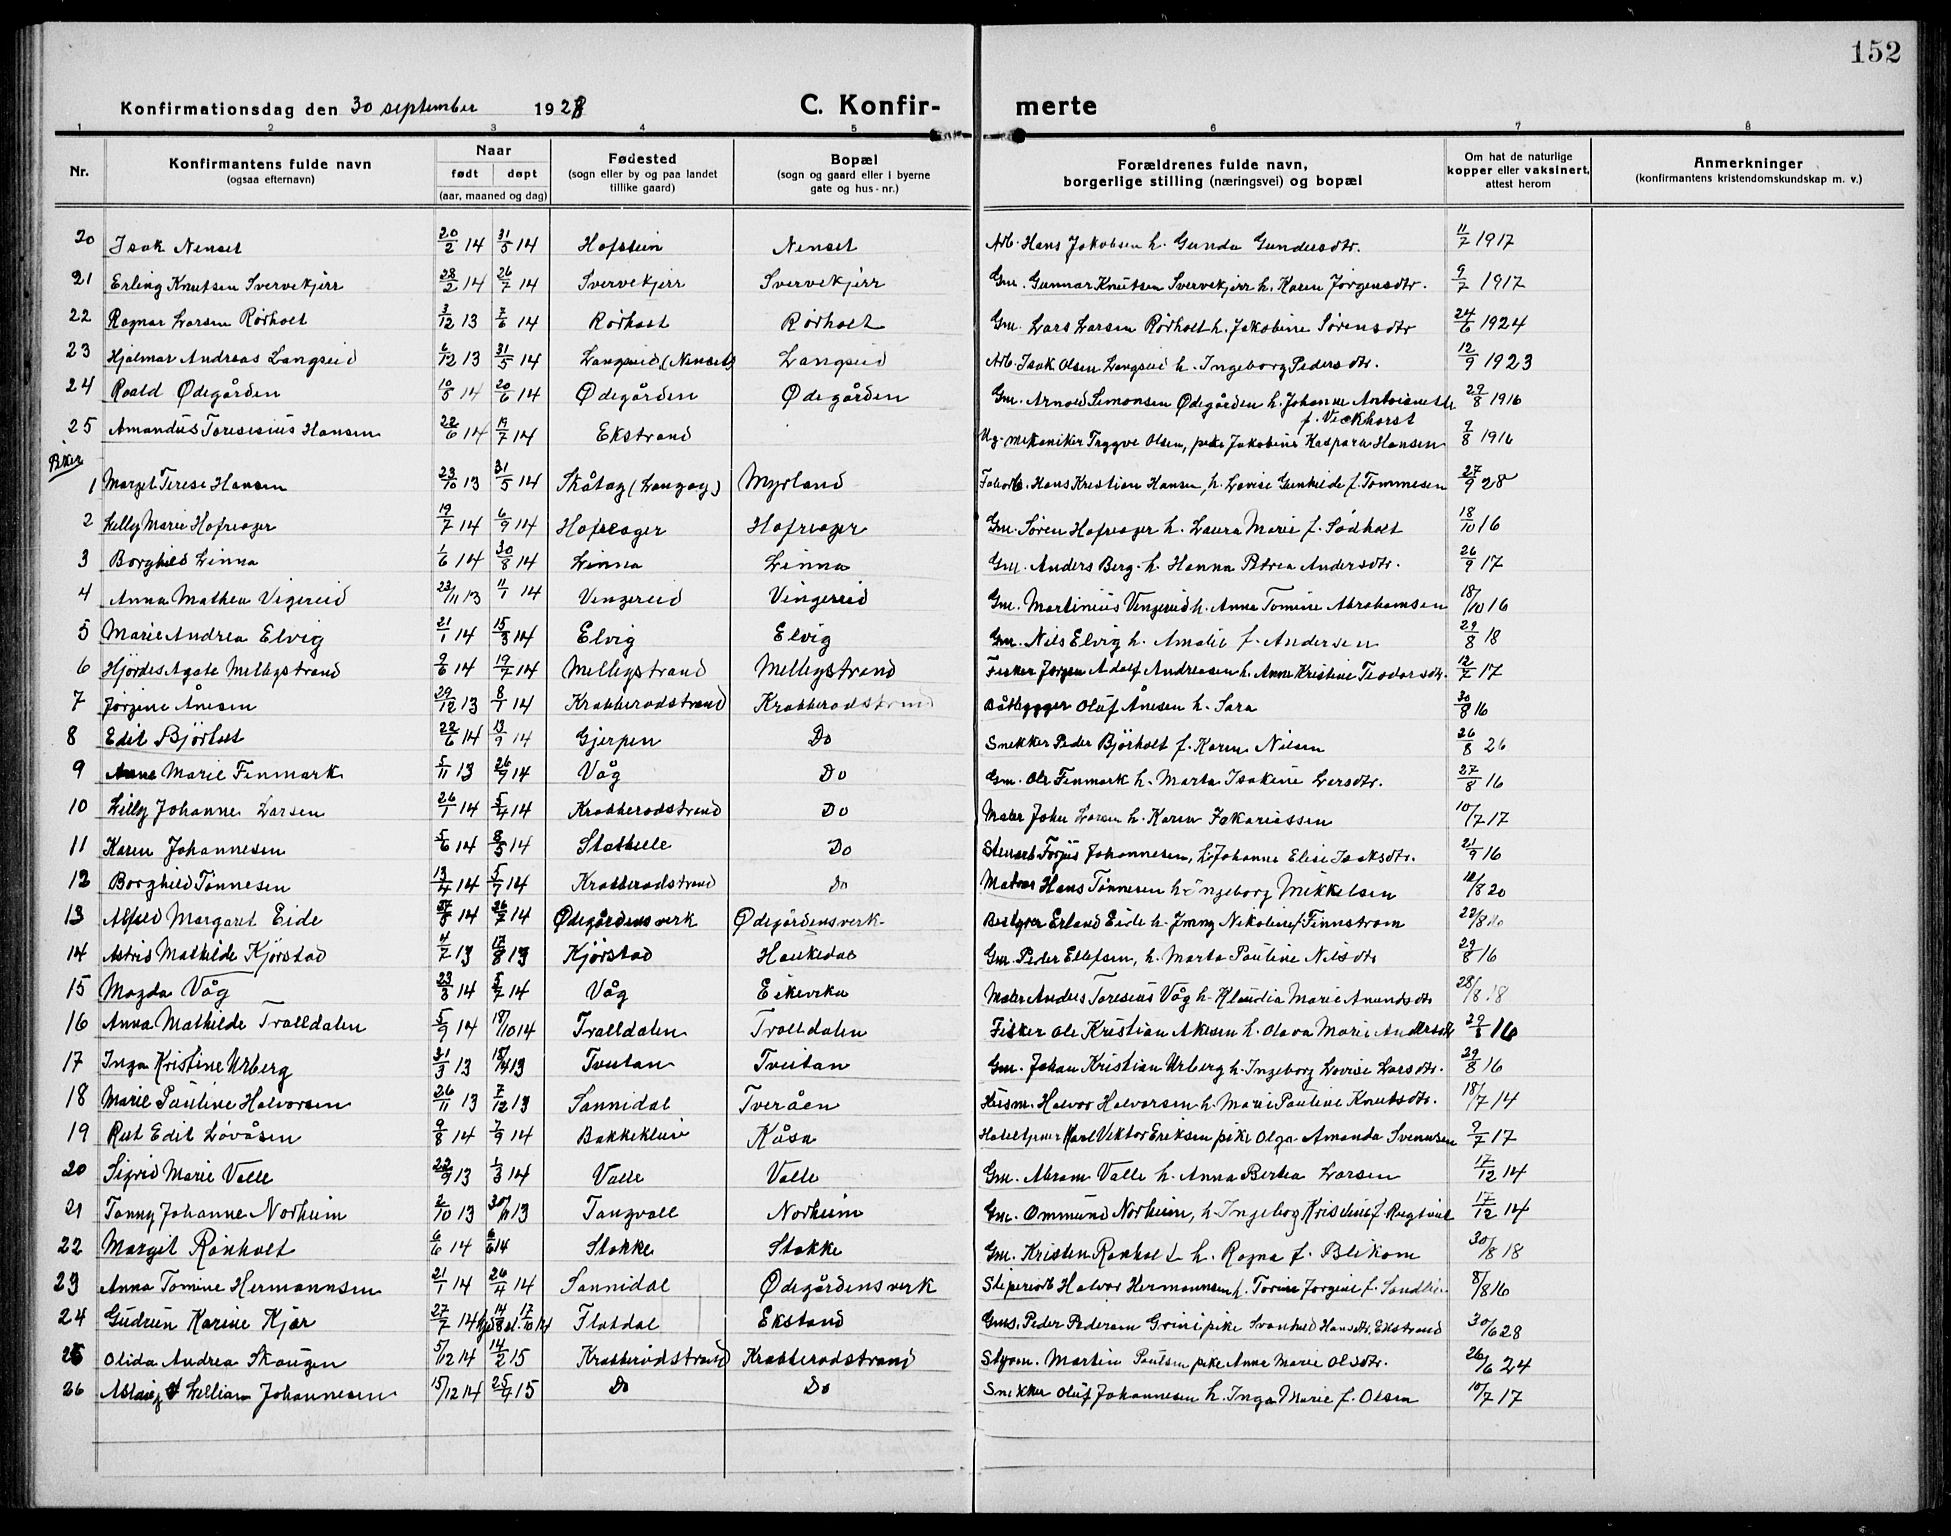 152
Konfirmationsdag den 30 september 1928
C. Konfir- merte
1 2 3 4 5 6 7 8
Nr.
Konfirmantens fulde navn
(ogsaa efternavn)
Naar
født døpt
(aar, maaned og dag)
Fødested
(sogn eller by og paa landet
tillike gaard)
Bopæl
(sogn og gaard eller i byerne
gate og hus-nr.)
Forældrenes fulde navn,
borgerlige stilling (næringsvei) og bopæl
Om hat de naturlige
kopper eller vaksinert,
attest herom
Anmerkninger
(konfirmantens kristendomskundskap m. v.)
20 Isak Nenset 20/2 14 31/5 14 Hofstein Nenset Arb. Hans Jakobsen h. Gunda Gundersdtr. 11/7 1917
21 Erling Knutsen Svervekjerr 28/2 14 26/7 14 Svervekjerr Svervekjerr Gm. Gunnar Knutsen Svervekjerr h. Karen Jørgensdtr. 9/7 1917
22 Ragnar Larsen Rørholt 3/12 13 7/6 14 Rørholt Rørholt Gm. Lars Larsen Rørholt h. Jakobine Sørensdtr 24/6 1924
23 Hjalmar Andreas Langseid 6/12 13 31/5 14 Langseid (Nenset) Langseid Arb. Isak Olsen Langseid h. Ingeborg Pedersdtr. 12/9 1923
24 Roald Ødegården 10/5 14 20/6 14 Ødegården Ødegården Gm. Arnold Simonsen Ødegården h. Johanne Antoinette 29/8 1916
f. Veckhorst
25 Amandus Toresius Hansen 22/6 14 19/7 14 Ekstrand Ug. mekaniker Tryggve Olsen, pike Jakobine Kaspara Hansen 9/8 1916
Piker
1 Margit Terese Hansen 23/10 13 31/5 14 Skåtøy (Langøy) Myrland Hans Kristian Hansen, h. Lovise Gunhilde f. Tommesen 27/9 28
2 Lilly Marie Hofreager 19/7 14 6/9 14 Hofreager Hofreager Gm. Søren Hofreager h. Laura Marie f. Sødholt 18/10 16
3 Borghild Linna 1/6 14 30/8 14 Linna Linna Gm. Anders Berg. h. Hanna Petrea Andersdtr. 26/9 17
4 Anna Mathea Vigereid 23/11 13 11/1 14 Vingereid Vingereid Gm. Martinius Vingereid h. Anne Tomine Abrahamsen 18/10 16
5 Marie Andrea Elvig 21/1 14 15/3 14 Elvig Elvig Gm. Nils Elvig h. Amalie f. Andersen 29/8 18
6 Hjördis Agate Mellbystrand 9/6 14 19/7 14 Mellbystrand Mellbystrand Fisker Jørgen Adolf Andreasen h. Anne Kristine Teodorsdtr. 12/7 17
7 Jørgine Ånesen 29/12 13 8/1 14 Krabberødstrand Krabberødstrand Båtbygger Oluf Ånesen h. Sara 30/8 16
8 Edit Bjørholt 22/6 14 13/9 14 Gjerpen Do Snekker Peder Bjørholt f. Karen Nilsen 26/8 26
9 Anne Marie Finmark 5/11 13 26/7 14 Våg Do Gm. Ole Finmark h. Marta Isakine Larsdtr. 27/8 16
10 Lilly Johanne Larsen 26/1 14 5/4 14 Krabberødstrand Do Maler Johan Larsen h. Karen Zakariassen 10/7 17
11 Karen Johannesen 5/6 14 8/5 14 Stathelle Do Stenarb. Torjus Johannesen, h. Johanne Elise Isaksdtr. 21/9 16
12 Borghild Tønnesen 13/4 14 5/7 14 Krabberødstrand Do Matros Hans Tønnesen h. Ingeborg Mikkelsen 12/8 20
13 Alfhild Margaret Eide 14 26/7 14 Ødegårdens verk Ødegårdensverk Bestyrer Erland Eide h. Jenny Nikoline f. Finnstrøm
14 Astrid Mathilde Kjørstad 4/7 13 17/8 13 Kjørstad Haukedal Gm. Peder Ellefsen, h. Marta Pauline Nilsdtr 29/8 16
15 Magda Våg 23/3 14 5/7 14 Våg Eikevika Maler Anders Toresius Våg h. Klaudia Marie Amundsdtr 28/8 18
16 Anna Mathilde Tralldalen 5/9 14 18/10 14 Tralldalen Tralldalen Fisker Ole Kristian Akesen h. Olava Marie Andersdtr 29/8 16
17 Inga Kristine Urberg 31/3 13 13 Tveitan Tveitan Gm. Johan Kristian Urberg h. Ingeborg Lovise Larsdtr. 29/8 16
18 Marie Pauline Halvorsen 26/11 13 7/12 13 Sannidal Tveråen Husm. Halvor Halvorsen h. Marie Pauline Knutsdtr. 18/7 14
19 Rut Edit Løvåsen 9/8 14 7/9 14 Bakkekleiv Kåsa Karl Viktor Eriksen pike Olga Amanda Svennsen 9/7 17
20 Sigrid Marie Valle 22/9 13 1/3 14 Valle Valle Gm. Abram Valle h. Anna Bertea Larsen 17/12 14
21 Tanny Johanne Norheim 2/10 13 30/11 13 Tangvall Norheim Gm. Ommund Norheim, h. Ingeborg Kristine f. Rugtveit 17/12 14
22 Margit Rønholt 6/6 14 14 Stokke Stokke Gm. Kristen Rønholt h. Ragna f. Blekom 30/8 18
23 Anna Tomine Hermannsen 21/1 14 26/4 14 Sannidal Ødegårdensverk Halvor Hermannsen h. Torine Jørgine f. 8/8 16
24 Gudrun Karine Kjær 27/7 14 hjd 14/8 st. 17/10 14 Flatdal Ekstand Gms. Peder Pedersen Grini pike Svanhild Hansdtr. Ekstrand 30/6 28
25 Olida Andrea Skaugen 5/12 14 14/2 15 Krabberødstrand Krabberødstrand Styrm. Martin Paulsen pike Anne Marie Olsdtr. 26/6 24
26 Aslaug Lillian Johannesen 15/12 14 25/4 15 Do Do Snekker Oluf Johannesen h. Inga Marie f. Olsen 10/7 17